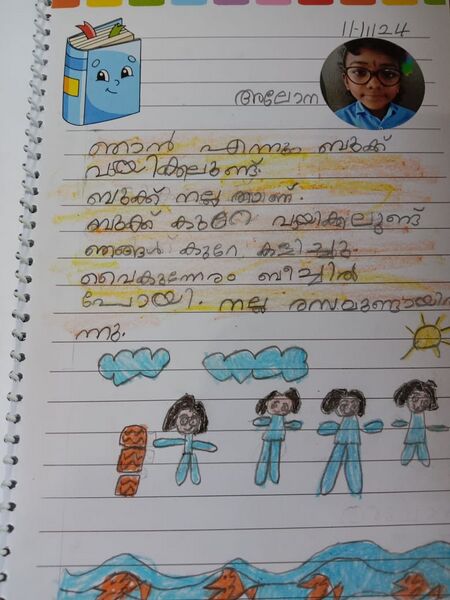 11-11-24
അലോന
ഞാൻ എന്നും ബുക്ക്
വായിക്കലുണ്ട്.
ബുക്ക് നല്ല ആണ്.
ബുക്ക് കുറേ വായിക്കലുണ്ട്
ഞങ്ങൾ കുറേ കളിച്ചു.
വൈകുന്നേരം ബീച്ചിൽ
പോയി. നല്ല രസമുണ്ടായി
ന്നു.